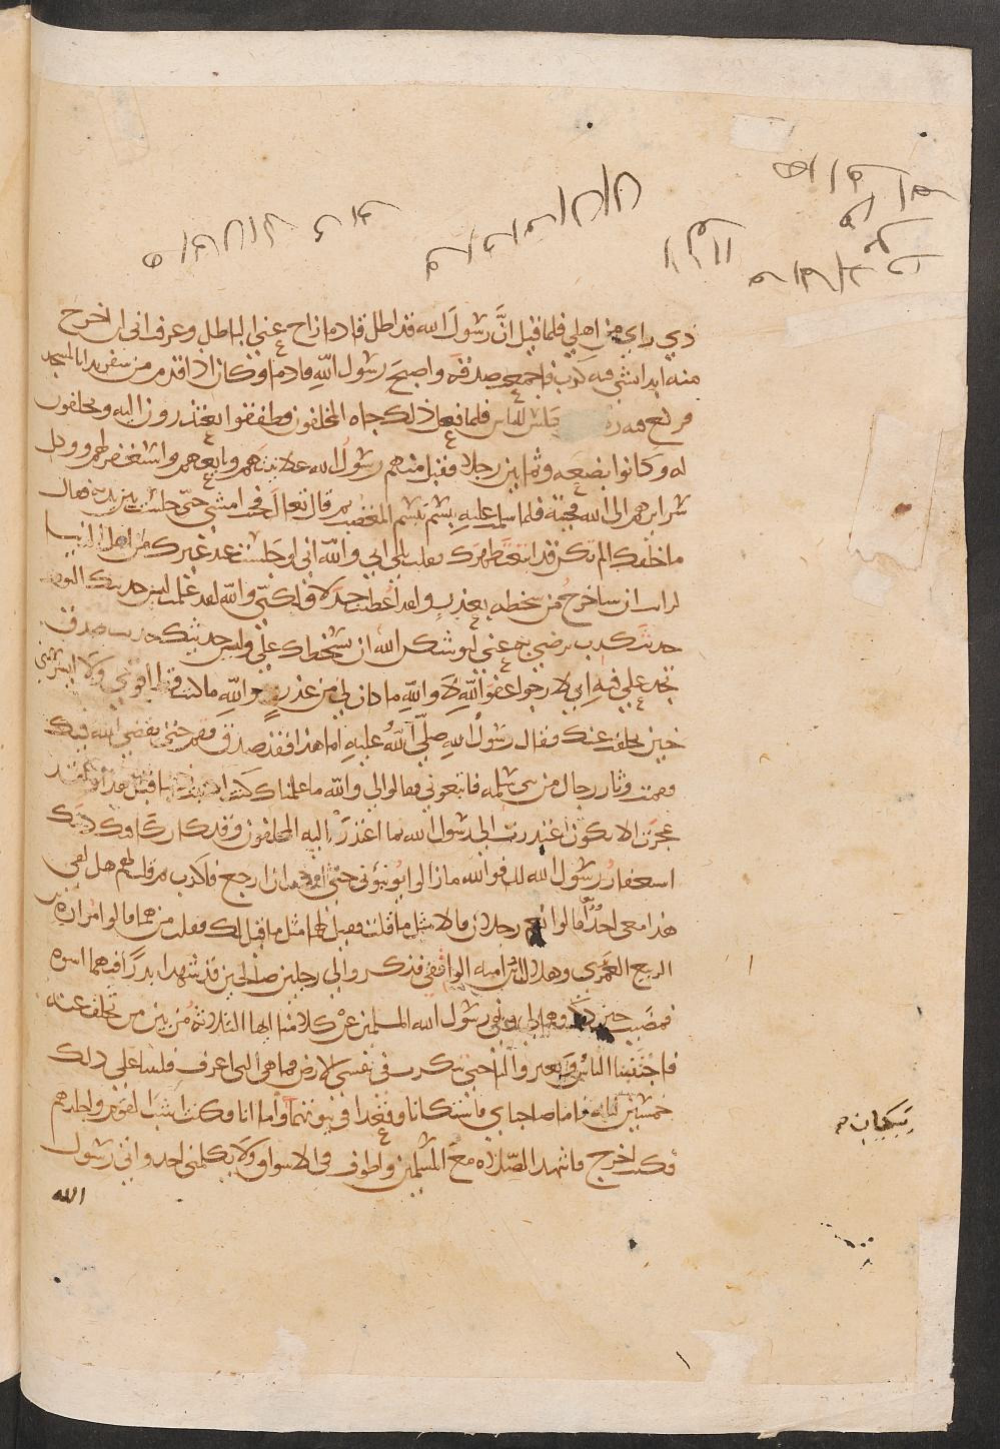 ذي راي من اهلي فلما قيل ان رسول الله قد اطل قادما زاح عني الباطل وعرفت اني لن اخرج
منه ابدا بشي فيه كذب فاجمعت صدقه واصبح رسول الله قادما وكان اذا قدم من سفر بدا بالمسجد
فركع فيه ثم جلس للناس فلما فعل ذلك جاه المخلفون وطفقوا يعتذرون اليه ويحلفون
له وكانوا بضعه وثمانين رجلا فقبل منهم رسول الله علانيتهم وبايعهم واستغفر لهم ووكل
سرايرهم الى الله فجيته فلما سلمت عليه تبسم تبسم المغضب ثم قال تعال فجيت امشي حتى جلست بين يديه فقال
ما خلفك الم تكن قد ابتعت ظهرك فقلت بلى اني والله اني لو جلست عند غيرك من اهل الدنيا
لرايت ان ساخرج من سخطه بعذر ولقد اعطيت جدلا ولكني والله لقد علمت لين حدثتك اليوم
حديث كذب ترضى به عني ليوشكن الله ان يسخطك علي ولين حدثتك حديث صدق
تجد علي فيه اني لارجوا عفو الله لا والله ما كان لي من عذر والله ما كنت قط اقوى ولا ايسر مني
حين تخلفت عنك فقال رسول الله صلى الله عليه اما هذا فقد صدق فقم حتى يقضي الله فيك
فقمت وثار رجال من بني سلمه فاتبعوني فقالوا لي والله ما علمناك كنت اذنبت ذنبا قبل هذا ولقد
عجزت الا تكون اعتذرت الى رسول الله بما اعتذر اليه المخلفون وقد كان كافيك ذنبك
استغفار رسول الله لك فوالله ما زالوا يونبوني حتى اردت ان ارجع فاكذب ثم قلت لهم هل لقي
هذا معي احد قالوا نعم رجلان قالا مثل ما قلت فقيل لهما مثل ما قيل لك فقلت من هما قالوا مراره بن
الربيع العمري وهلال بن اميه الواقفي فذكروا لي رجلين صالحين قد شهدا بدرا فيهما اسوه
فمضيت حين ذكروهما لي ونهى رسول الله المسلمين عن كلامنا ايها الثلاثة من بين من تخلف عنه
فاجتنبنا الناس وتغيروا لنا حتى تنكرت في نفسي الارض فما هي التي اعرف فلبثنا على ذلك
خمسين ليله فاما صاحباي فاستكانا وقعدا في بيوتهما واما انا فكنت اشب القوم واجلدهم
فكنت اخرج فاشهد الصلاه مع المسلمين واطوف في الاسواق ولا يكلمني احد واتي رسول
الله